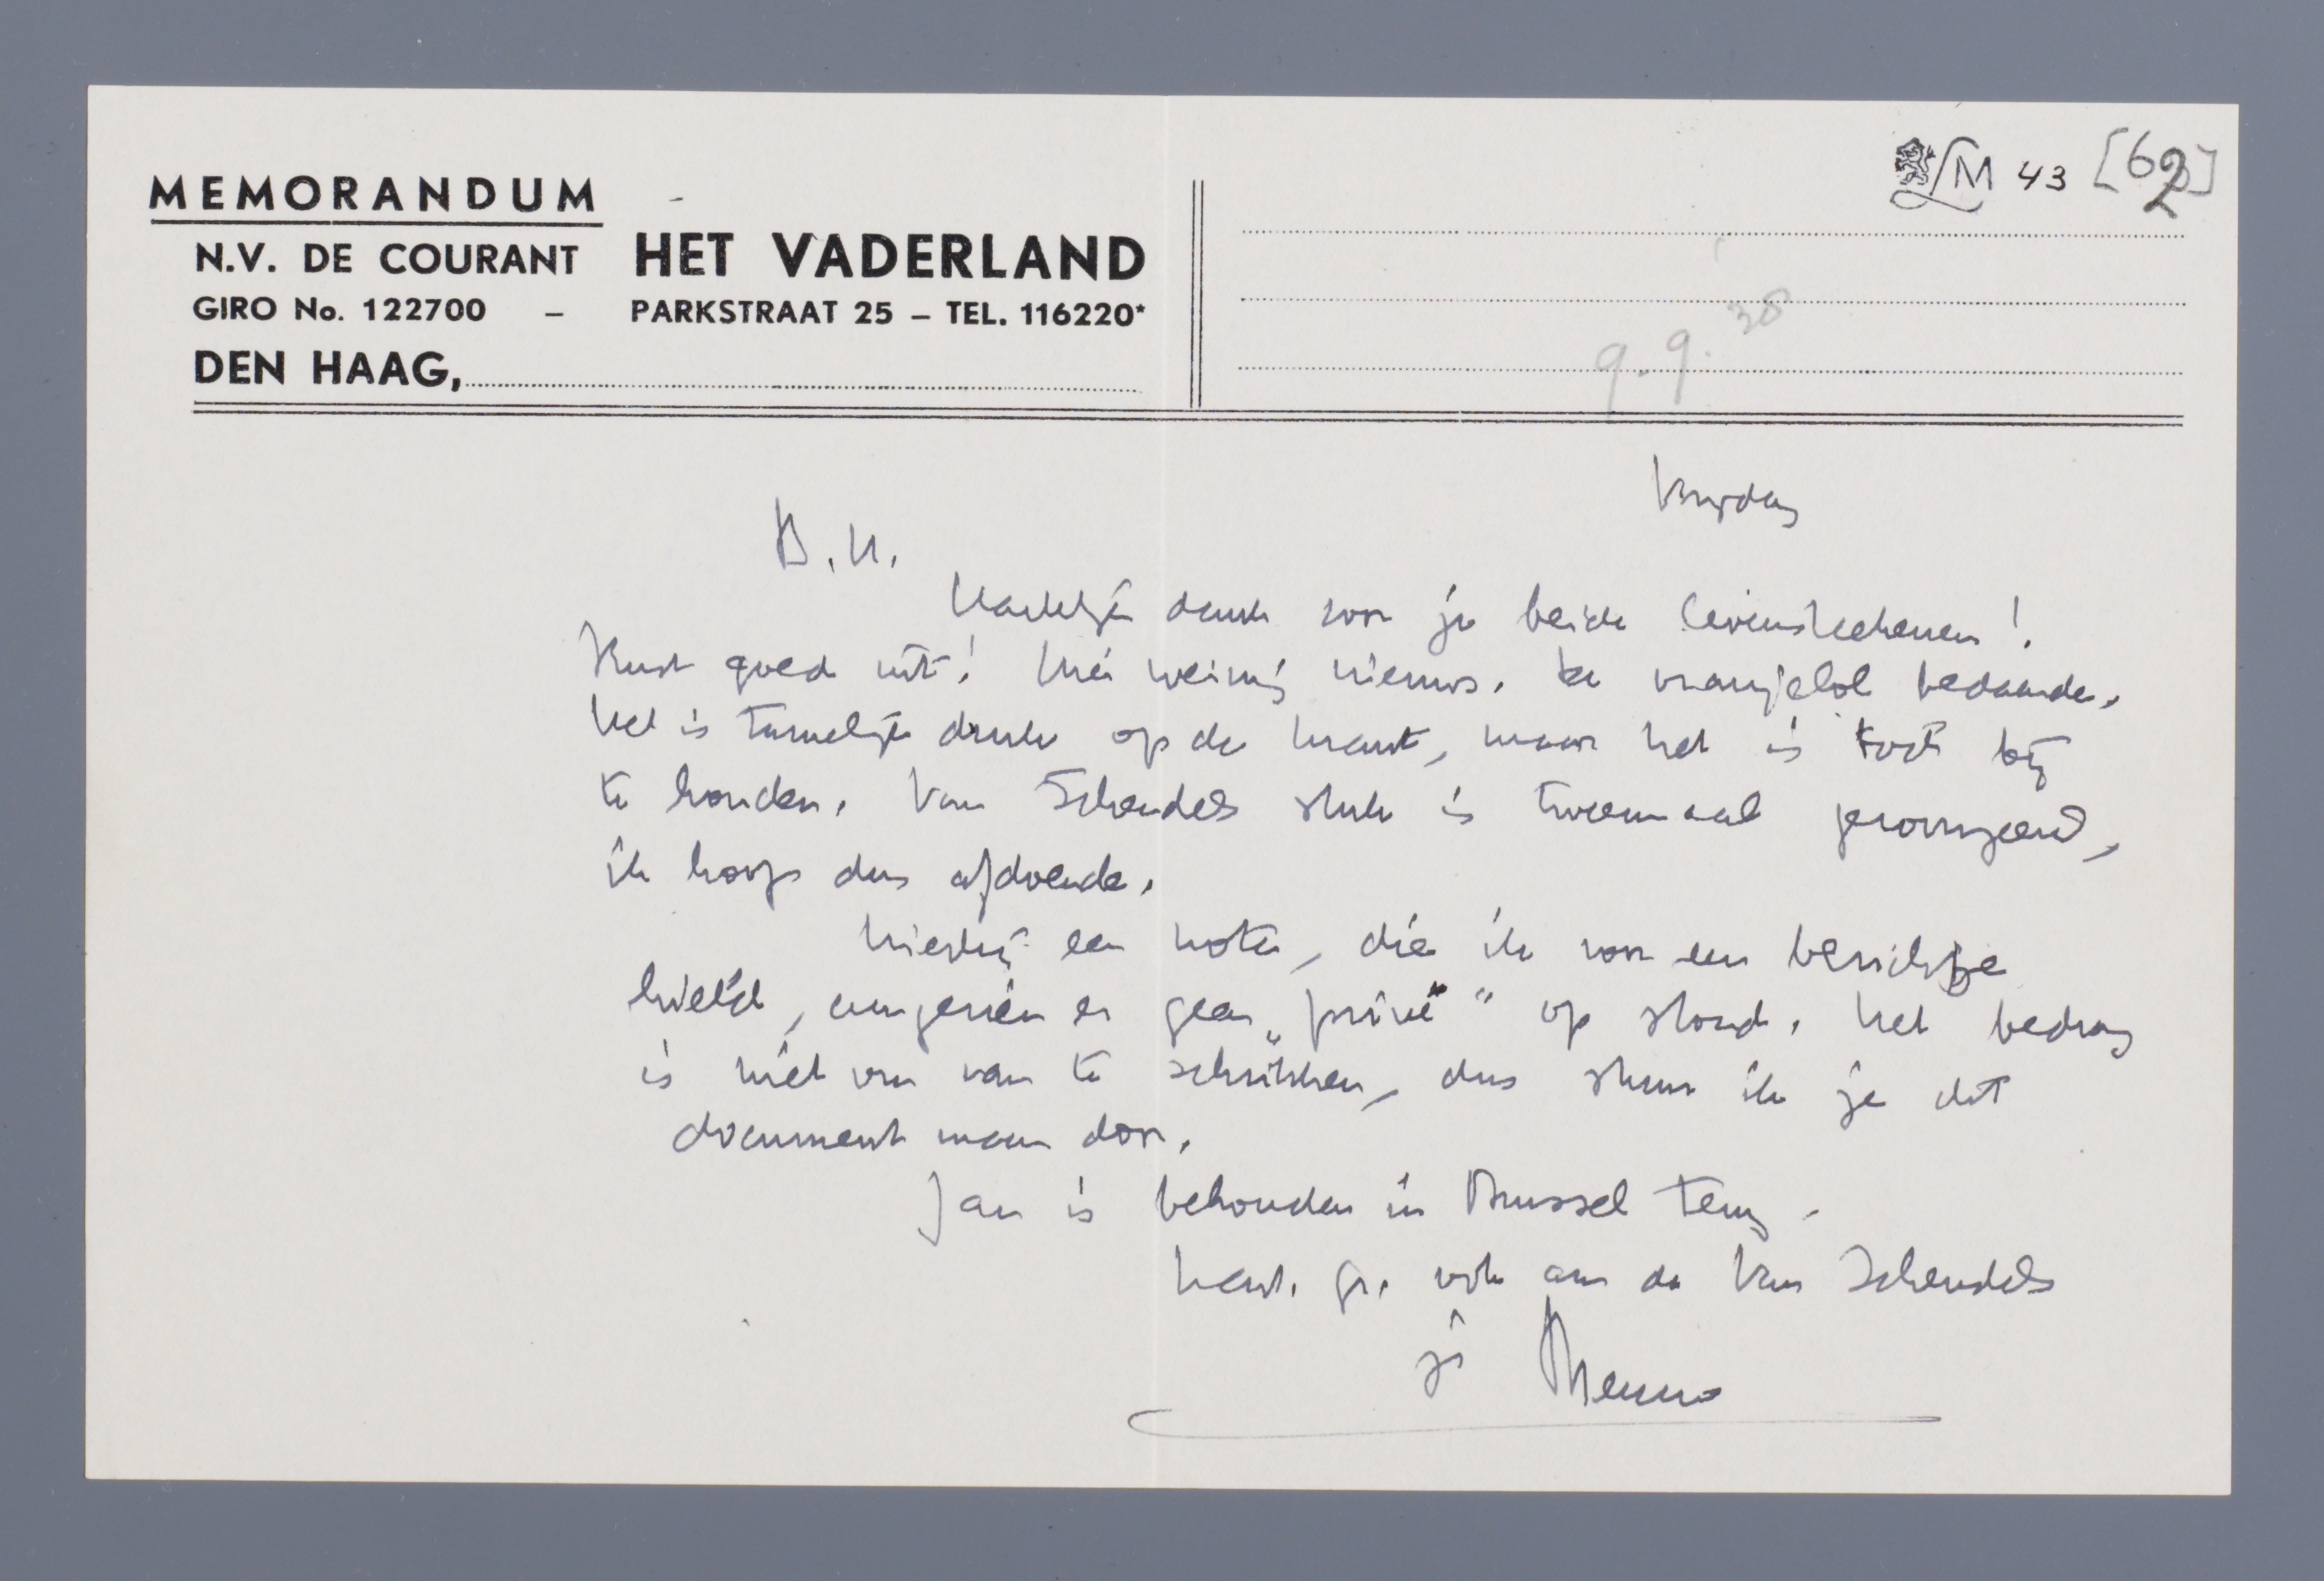 MEMORANDUM
N.V. DE COURANT HET VADERLAND
GIRO No. 122700 – PARKSTRAAT 25 – TEL. 116220*
DEN HAAG,
LM 43 [62]
9.9.38
Vrijdag
B.H.
Hartelijk dank voor je beide levensteekenen!
Rust goed uit! Hier weinig nieuws. De oranjelol bedaarde.
Het is tamelijk druk op de krant, maar het is toch bij
te houden. Van Schendels stuk is tweemaal gecorrigeerd,
ik hoop dus afdoende.
Hierbij een nota, die ik voor een berichtje
hield, aangezien er geen „privé" op stond. Het bedrag
is niet om van te schrikken, dus stuur ik je dit
document maar door.
Jan is behouden in Brussel terug.
Hart. gr. ook aan de Van Schendels
je Menno